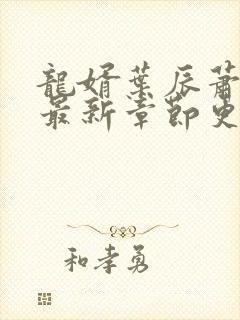 龍婿葉辰蕭
最新章節更
和孝勇